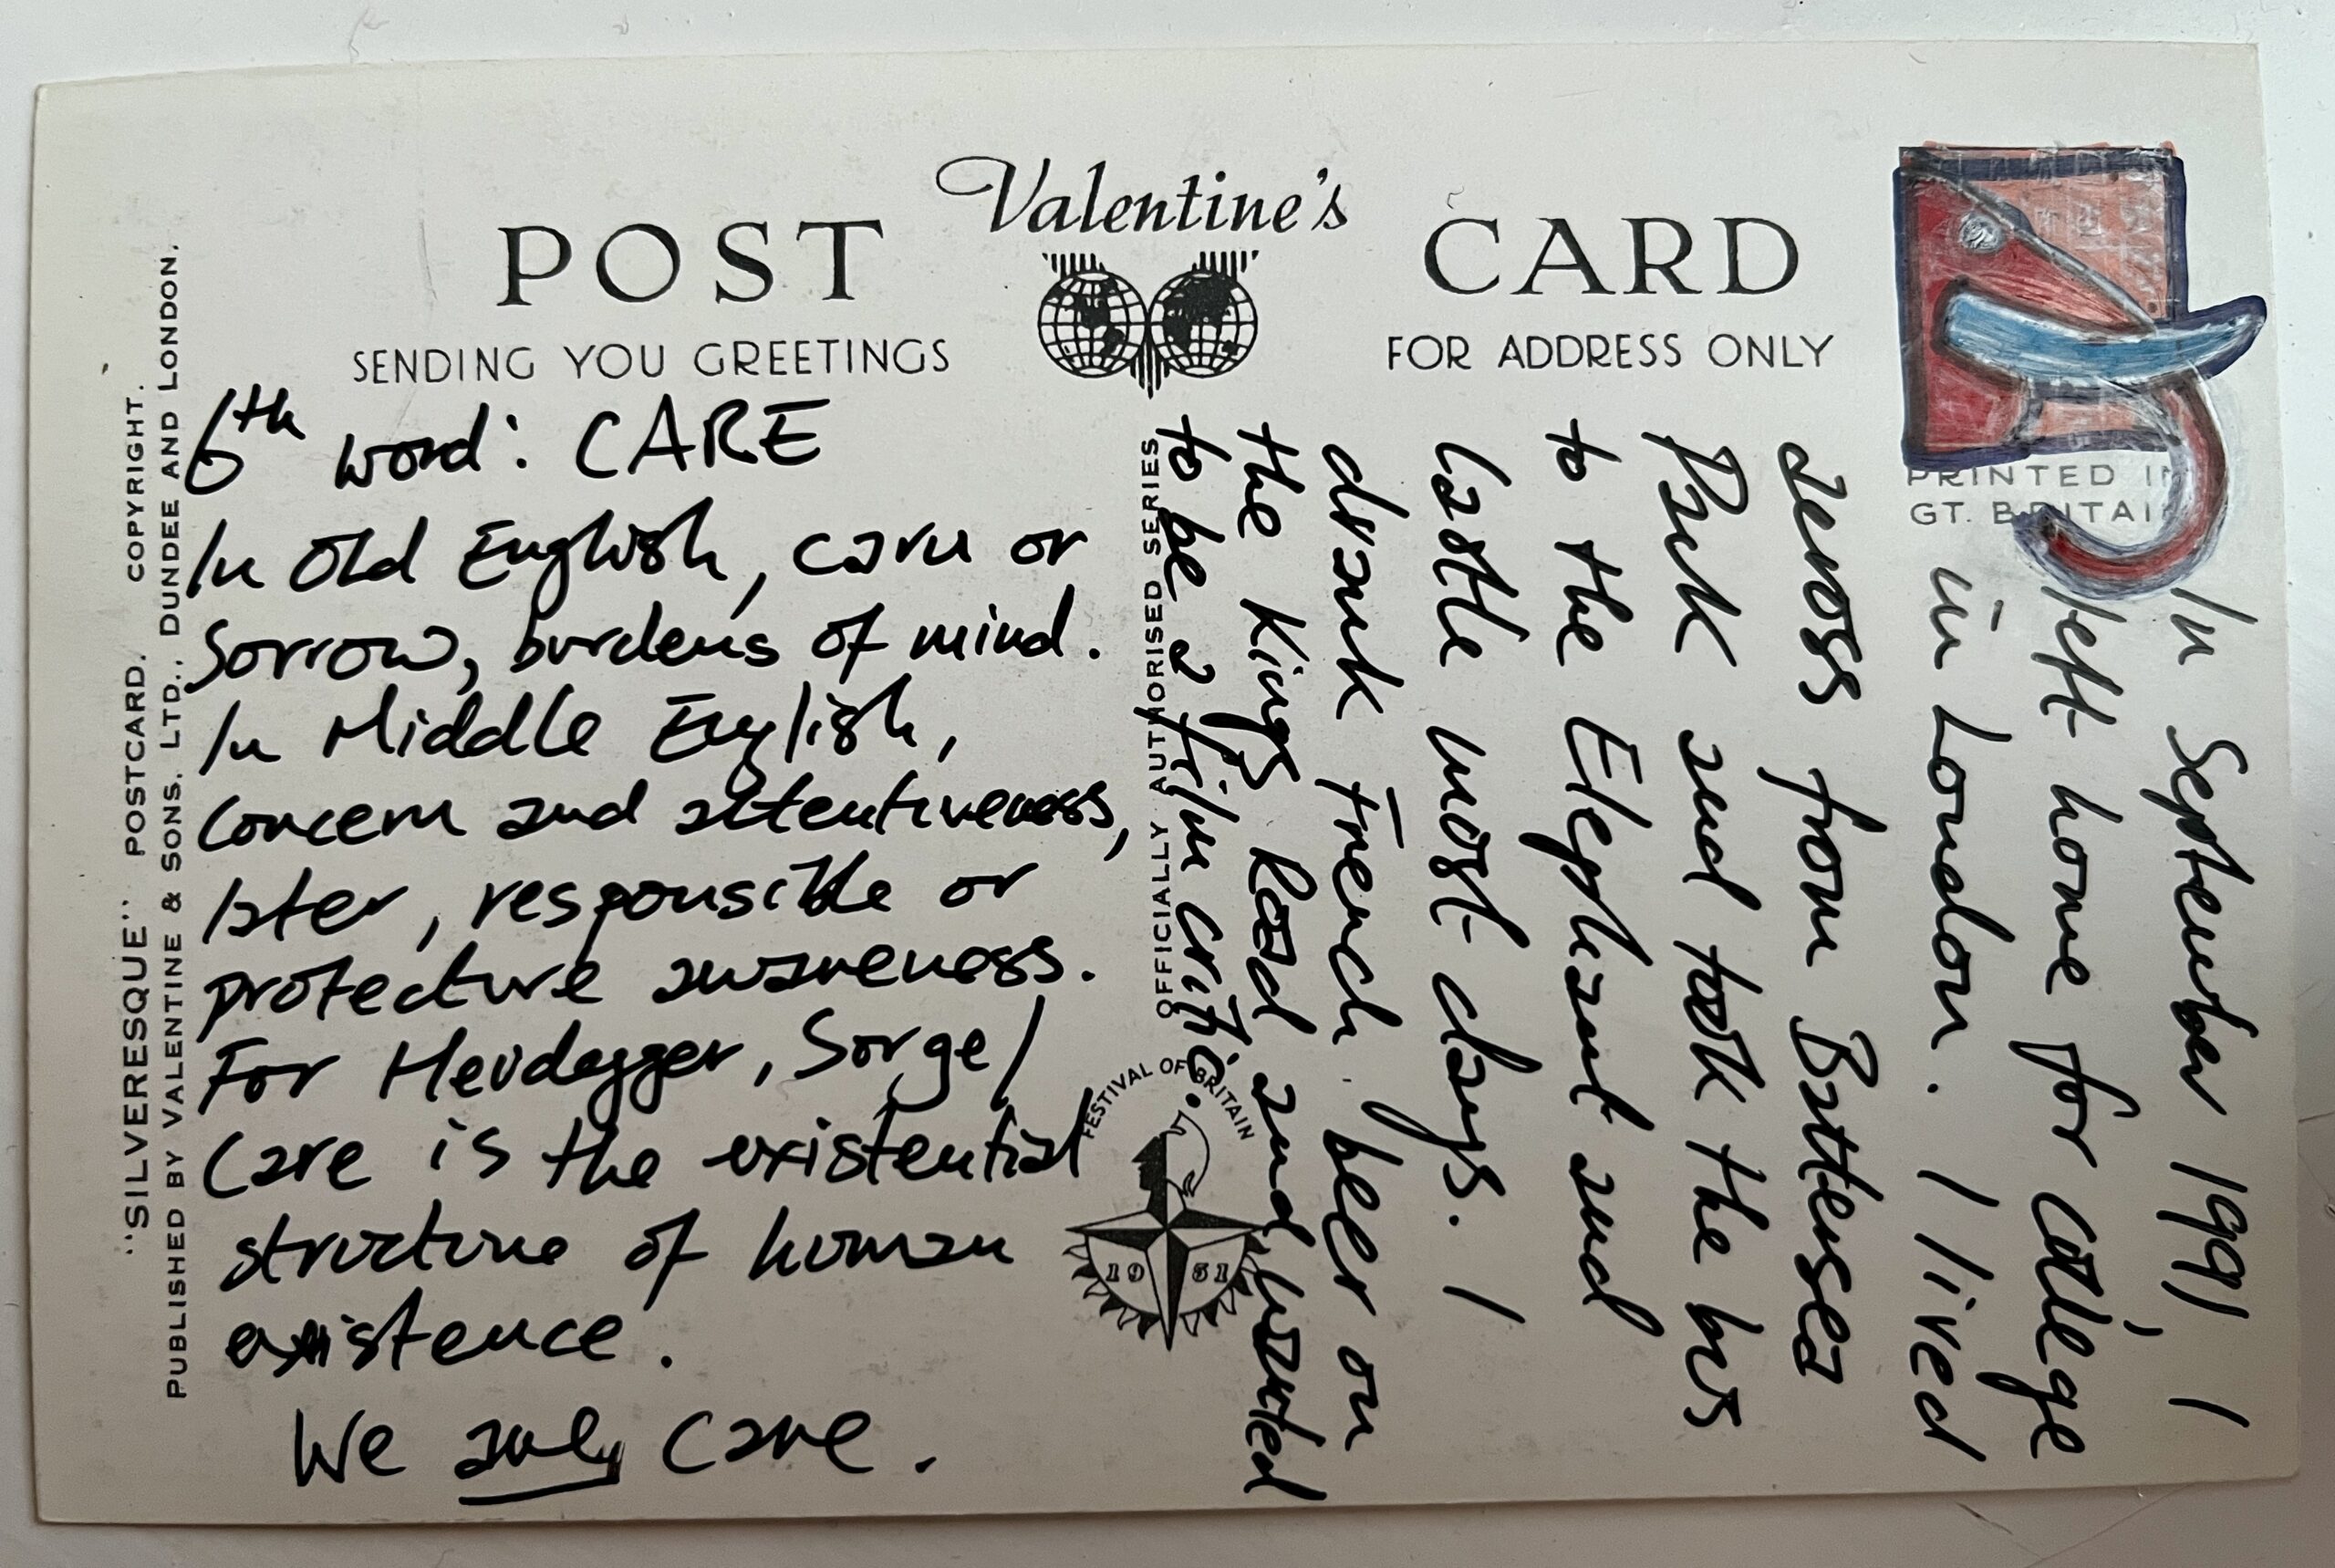 Valentine's
POST CARD
SENDING YOU GREETINGS
FOR ADDRESS ONLY
PRINTED IN
GT. BRITAIN
"SILVERESQUE" POSTCARD. COPYRIGHT.
PUBLISHED BY VALENTINE & SONS. LTD., DUNDEE AND LONDON.
6th word: CARE
In Old English, caru or
sorrow, burdens of mind.
In Middle English,
concern and attentiveness,
later, responsible or
protective awareness.
For Heidegger, Sorge/
Care is the existential
structure of human
existence.
We care.
OFFICIALLY AUTHORISED SERIES
FESTIVAL OF BRITAIN
1951
In September 1991, I
left home for college
in London. I lived
across from Battersea
Park and took the bus
to the Elephant and
Castle most days. I
drank French beer on
the Kings Road and wanted
to be a film critic.